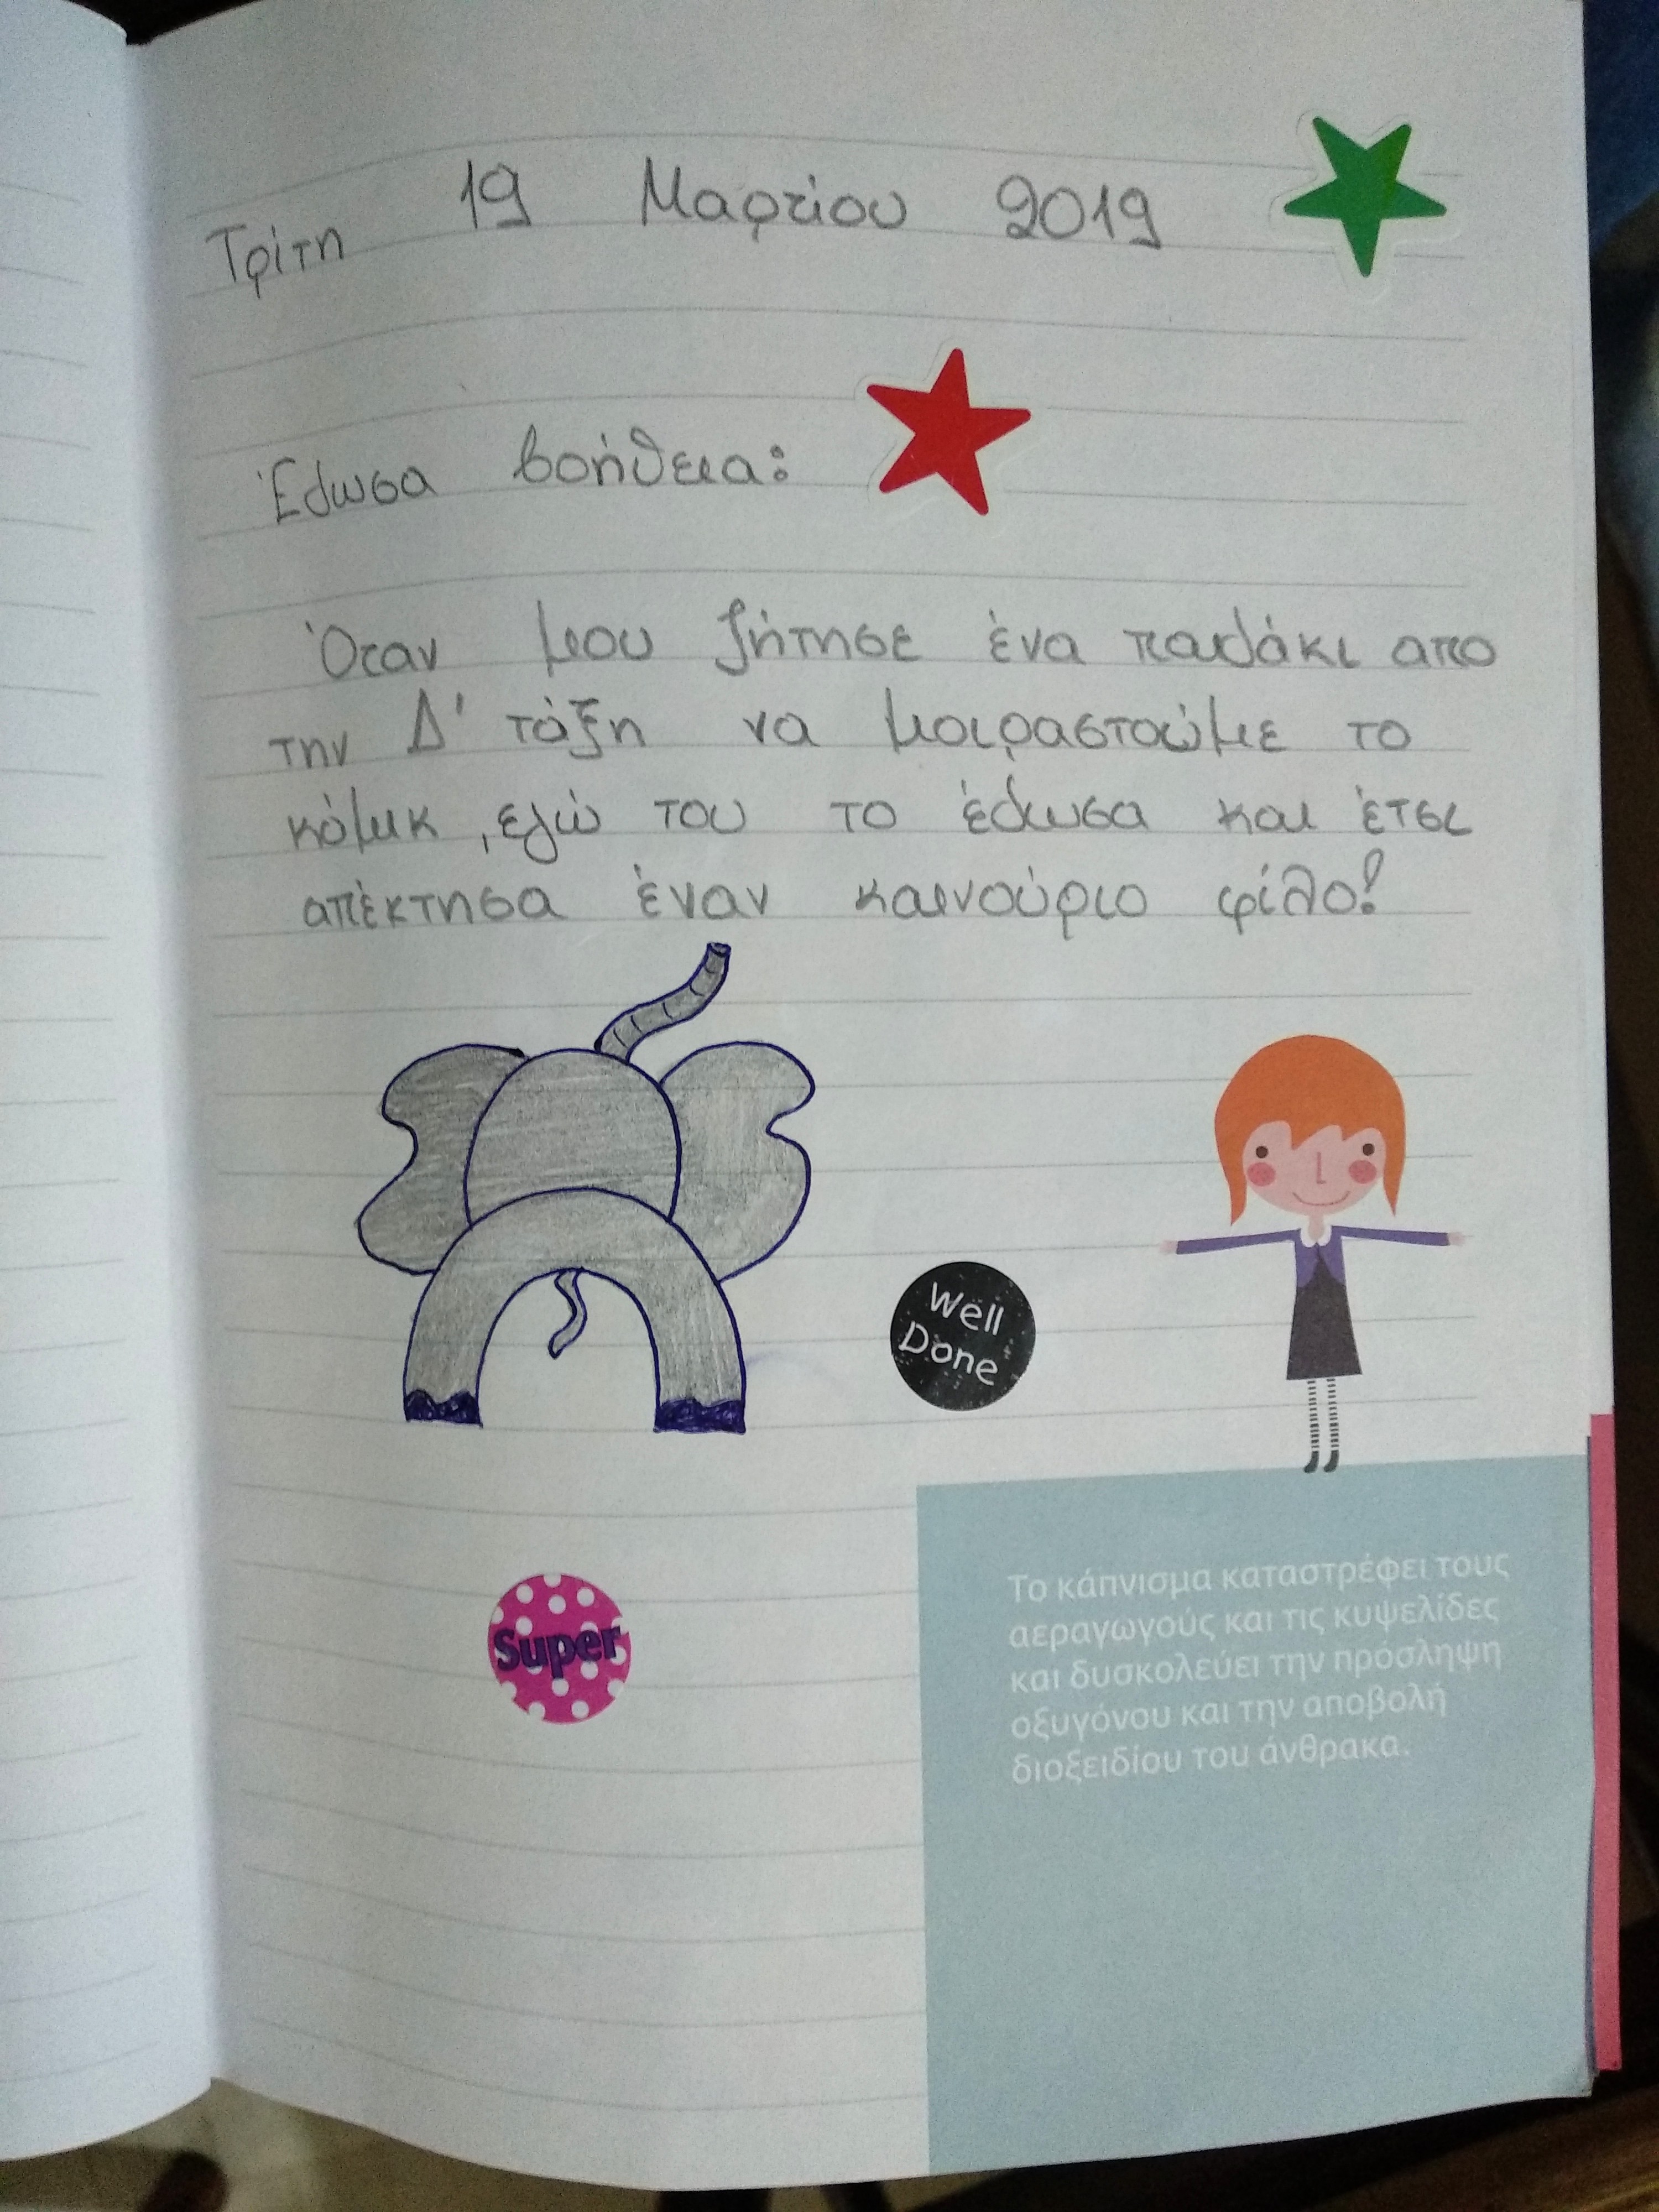 Τρίτη 19 Μαρτίου 2019
Έδωσα βοήθεια:
Όταν μου ζήτησε ένα παιδάκι απο
την Δ' τάξη να μοιραστούμε το
κόμικ, εγώ του το έδωσα και έτσι
απέκτησα έναν καινούριο φίλο!
Well
Done
Super
Το κάπνισμα καταστρέφει τους
αεραγωγούς και τις κυψελίδες
και δυσκολεύει την πρόσληψη
οξυγόνου και την αποβολή
διοξειδίου του άνθρακα.